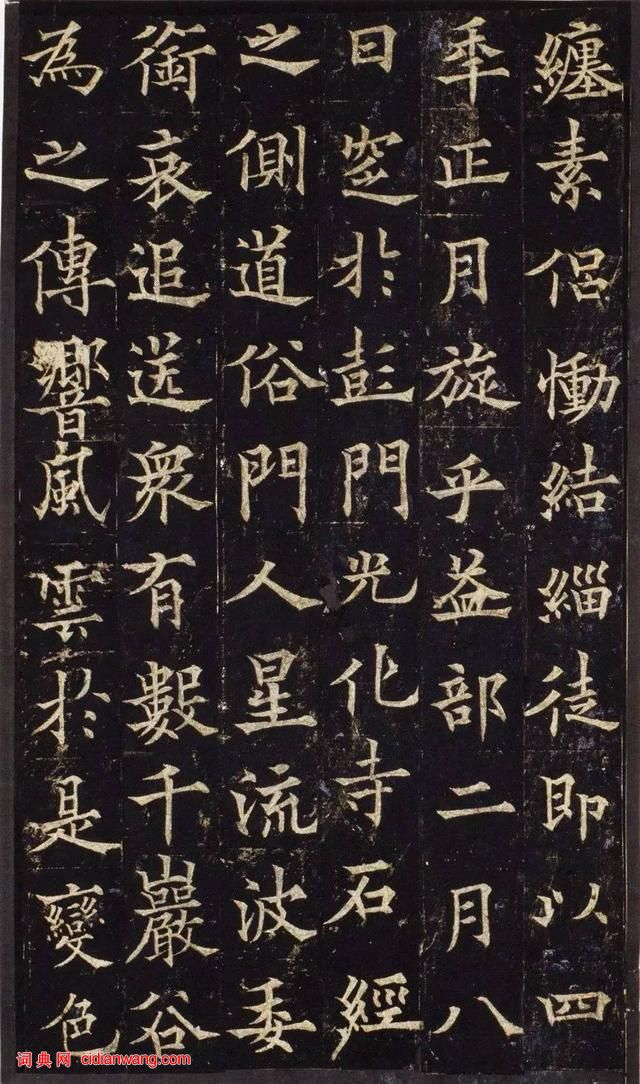 纏素侶慟結緇徒即以四
年正月旋乎益部二月八
日窆於彭門光化寺石經
之側道俗門人星流波委
銜哀追送眾有數千巖谷
為之傳響風雲於是變色
词典网 cidianwang.com